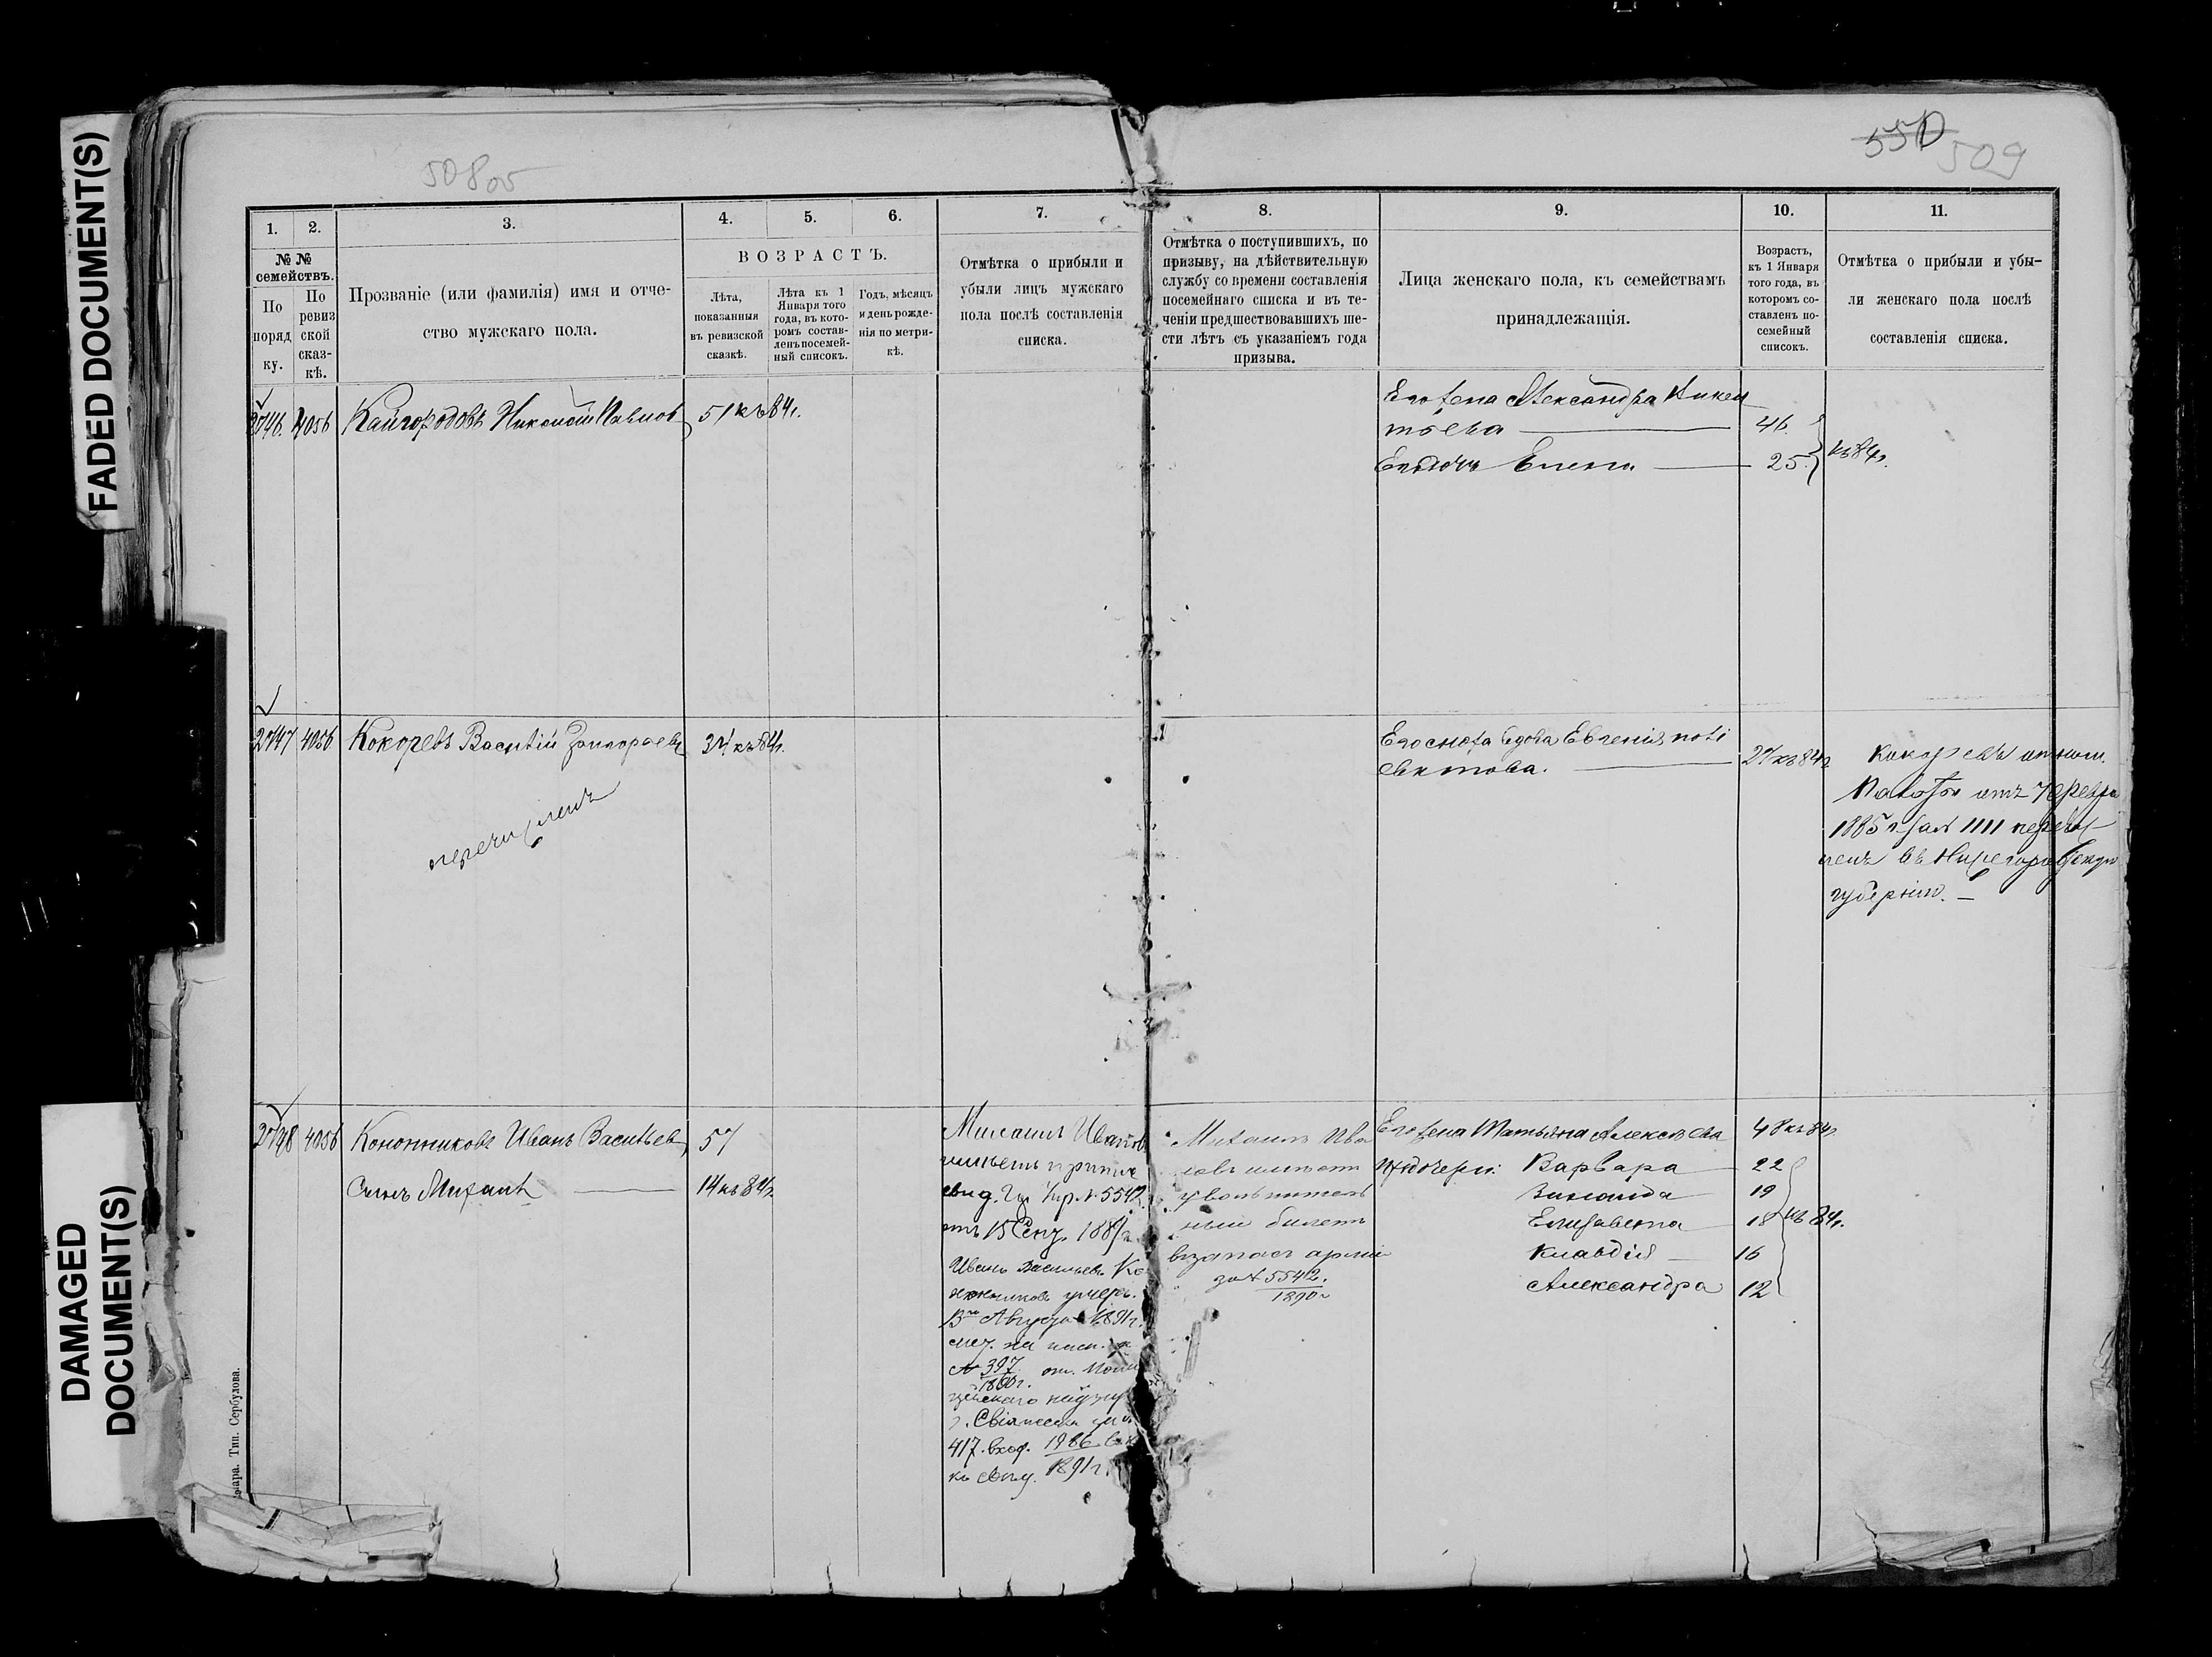 FADED DOCUMENT(S)
DAMAGED
DOCUMENT(S)
508 об
550
509
1.
2.
3.
4.
5.
6.
7.
8.
9.
10.
11.
№ №
семействъ.
По
поряд
ку.
По
ревиз
ской
сказ-
кѣ.
Прозваніе (или фамилія) имя и отче-
ство мужскаго пола.
ВОЗРАСТЪ.
Лѣта,
показанныя
въ ревизской
сказкѣ.
Лѣта къ 1
Января того
года, въ кото-
ромъ состав-
ленъ посемей-
ный списокъ.
Годъ, мѣсяцъ
и день рожде-
нія по метри-
кѣ.
Отмѣтка о прибыли и
убыли лицъ мужскаго
пола послѣ составленія
списка.
Отмѣтка о поступившихъ, по
призыву, на дѣйствительную
службу со времени составленія
посемейнаго списка и въ те-
ченіи предшествовавшихъ ше-
сти лѣтъ съ указаніемъ года
призыва.
Лица женскаго пола, къ семействамъ
принадлежащія.
Возрастъ,
къ 1 Января
того года, въ
которомъ со-
ставленъ по-
семейный
списокъ.
Отмѣтка о прибыли и убы-
ли женскаго пола послѣ
составленія списка.
2746. 4056 Кайгородовъ Николай Павлов 51 къ 84г.
Его жена Александра Никен
тьева 46.
Ея дочь Елена 25. къ 84г.
2747 4056 Кокоревъ Василій 34 къ 84г.
перечисленъ
Его сноха вдова Евгенія поли
евктова. 27 къ 84г
Кокоревъ отнош.
Палаты отъ 7 Февра
1885 г за № 1111 перечис
ленъ въ Нижегородскую
губернію.
2748 4056 Кононниковъ Иванъ Васильев 57
Сынъ Михаилъ 14 къ 84г
Михаилъ Иванов
имѣетъ
свид. № 5542
отъ 15 Сент. 188
Иванъ Васильевъ Ко
нонниковъ умеръ.
Августа 1891г.
№ 397
1890г.
цейскаго надзир
г. Свіяжска
417. вход. 1986
1891г.
Михаилъ Ива
новъ имѣетъ
увольнитель
ный билетъ
въ запасъ арміи
за № 5542.
1890г
Его жена Татьяна Алексѣева 48 къ 84г
Ихъ дочери: Варвара 22
Зинаида 19
Елизавета 18 къ 84г.
Клавдія 16
Александра 12
Тип. Сербулова.